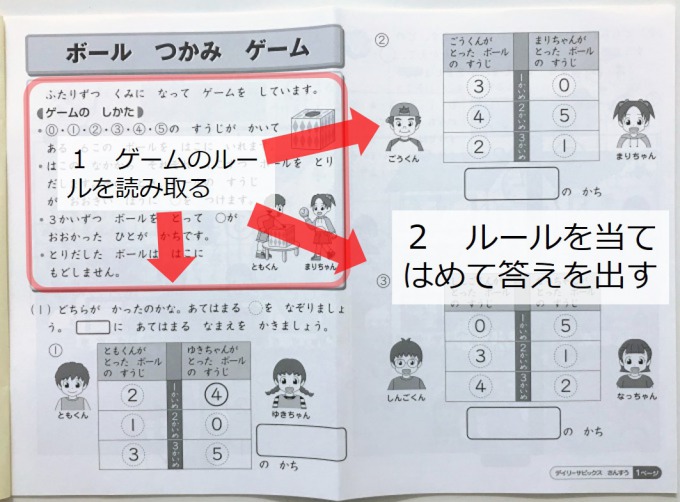 ボール つかみ ゲーム
ふたりずつ くみに なって ゲームを しています。
ゲームの しかた
・⓪・①・②・③・④・⑤の すうじが かいて
１ ゲームのルー
ルを読み取る
・３かいずつ ボールを とって ○が
おおかった ひとが かちです。
・とりだした ボールは はこに
もどしません。
ともくん
まりちゃん
(1) どちらが かったのかな。あてはまる ○を なぞりましょ
う。 に あてはまる なまえを かきましょう。
①
ともくんが とった ボール の すうじ
ゆきちゃんが とった ボール の すうじ
2 1かいめ 4
1 2かいめ 0
3 3かいめ 5
ともくん
ゆきちゃん
の かち
②
ごうくんが とった ボール の すうじ
まりちゃんが とった ボール の すうじ
3 1かいめ 0
4 2かいめ 5
2 3かいめ 1
ごうくん
まりちゃん
の かち
２ ルールを当て
はめて答えを出す
③
とった ボール の すうじ
とった ボール の すうじ
0 1かいめ 5
3 2かいめ 1
4 3かいめ 2
しんごくん
なっちゃん
の かち
デイリーサピックス さんすう 1ページ